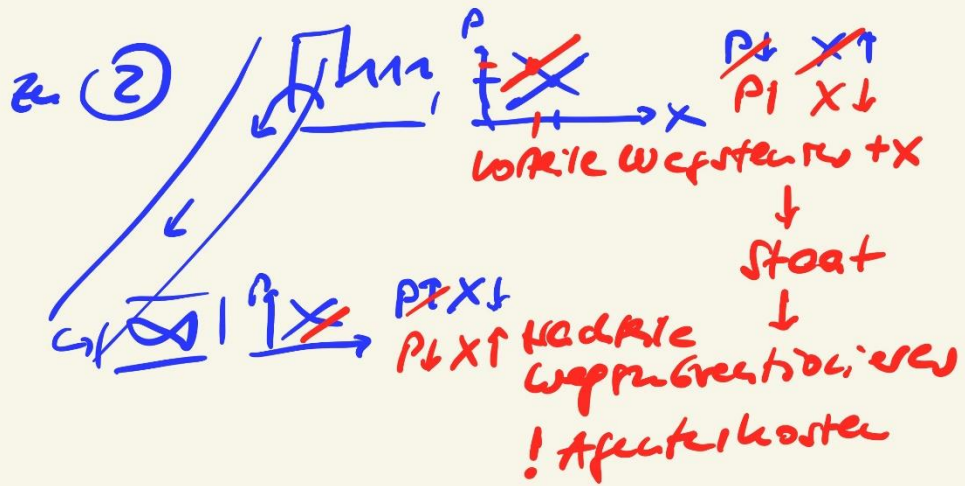 Zu ②
P
P↓ X↑
P↑ X↓
X
Vorteile wegsteuern +X
↓
Staat
↓
P
P↑ X↓
P↓ X↑
Nachteile
wegsubventionieren
! Agentenkosten